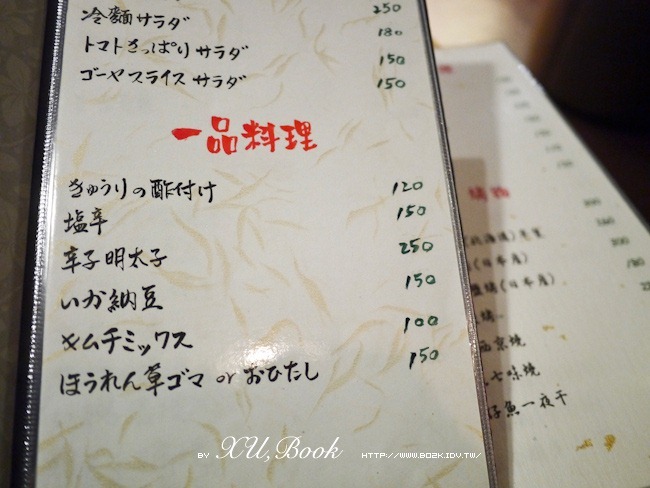 冷麺サラダ 250
トマトさっぱりサラダ 180
ゴーヤスライスサラダ 150
150
一品料理
きゅうりの酢付け 120
塩辛 150
辛子明太子 250
いか納豆 150
キムチミックス 100
ほうれん草ゴマ or おひたし 150
(日本産)
(日本産)
西京焼
七味焼
魚一夜干
BY XU, Book HTTP://WWW.BO2K.IDV.TW/